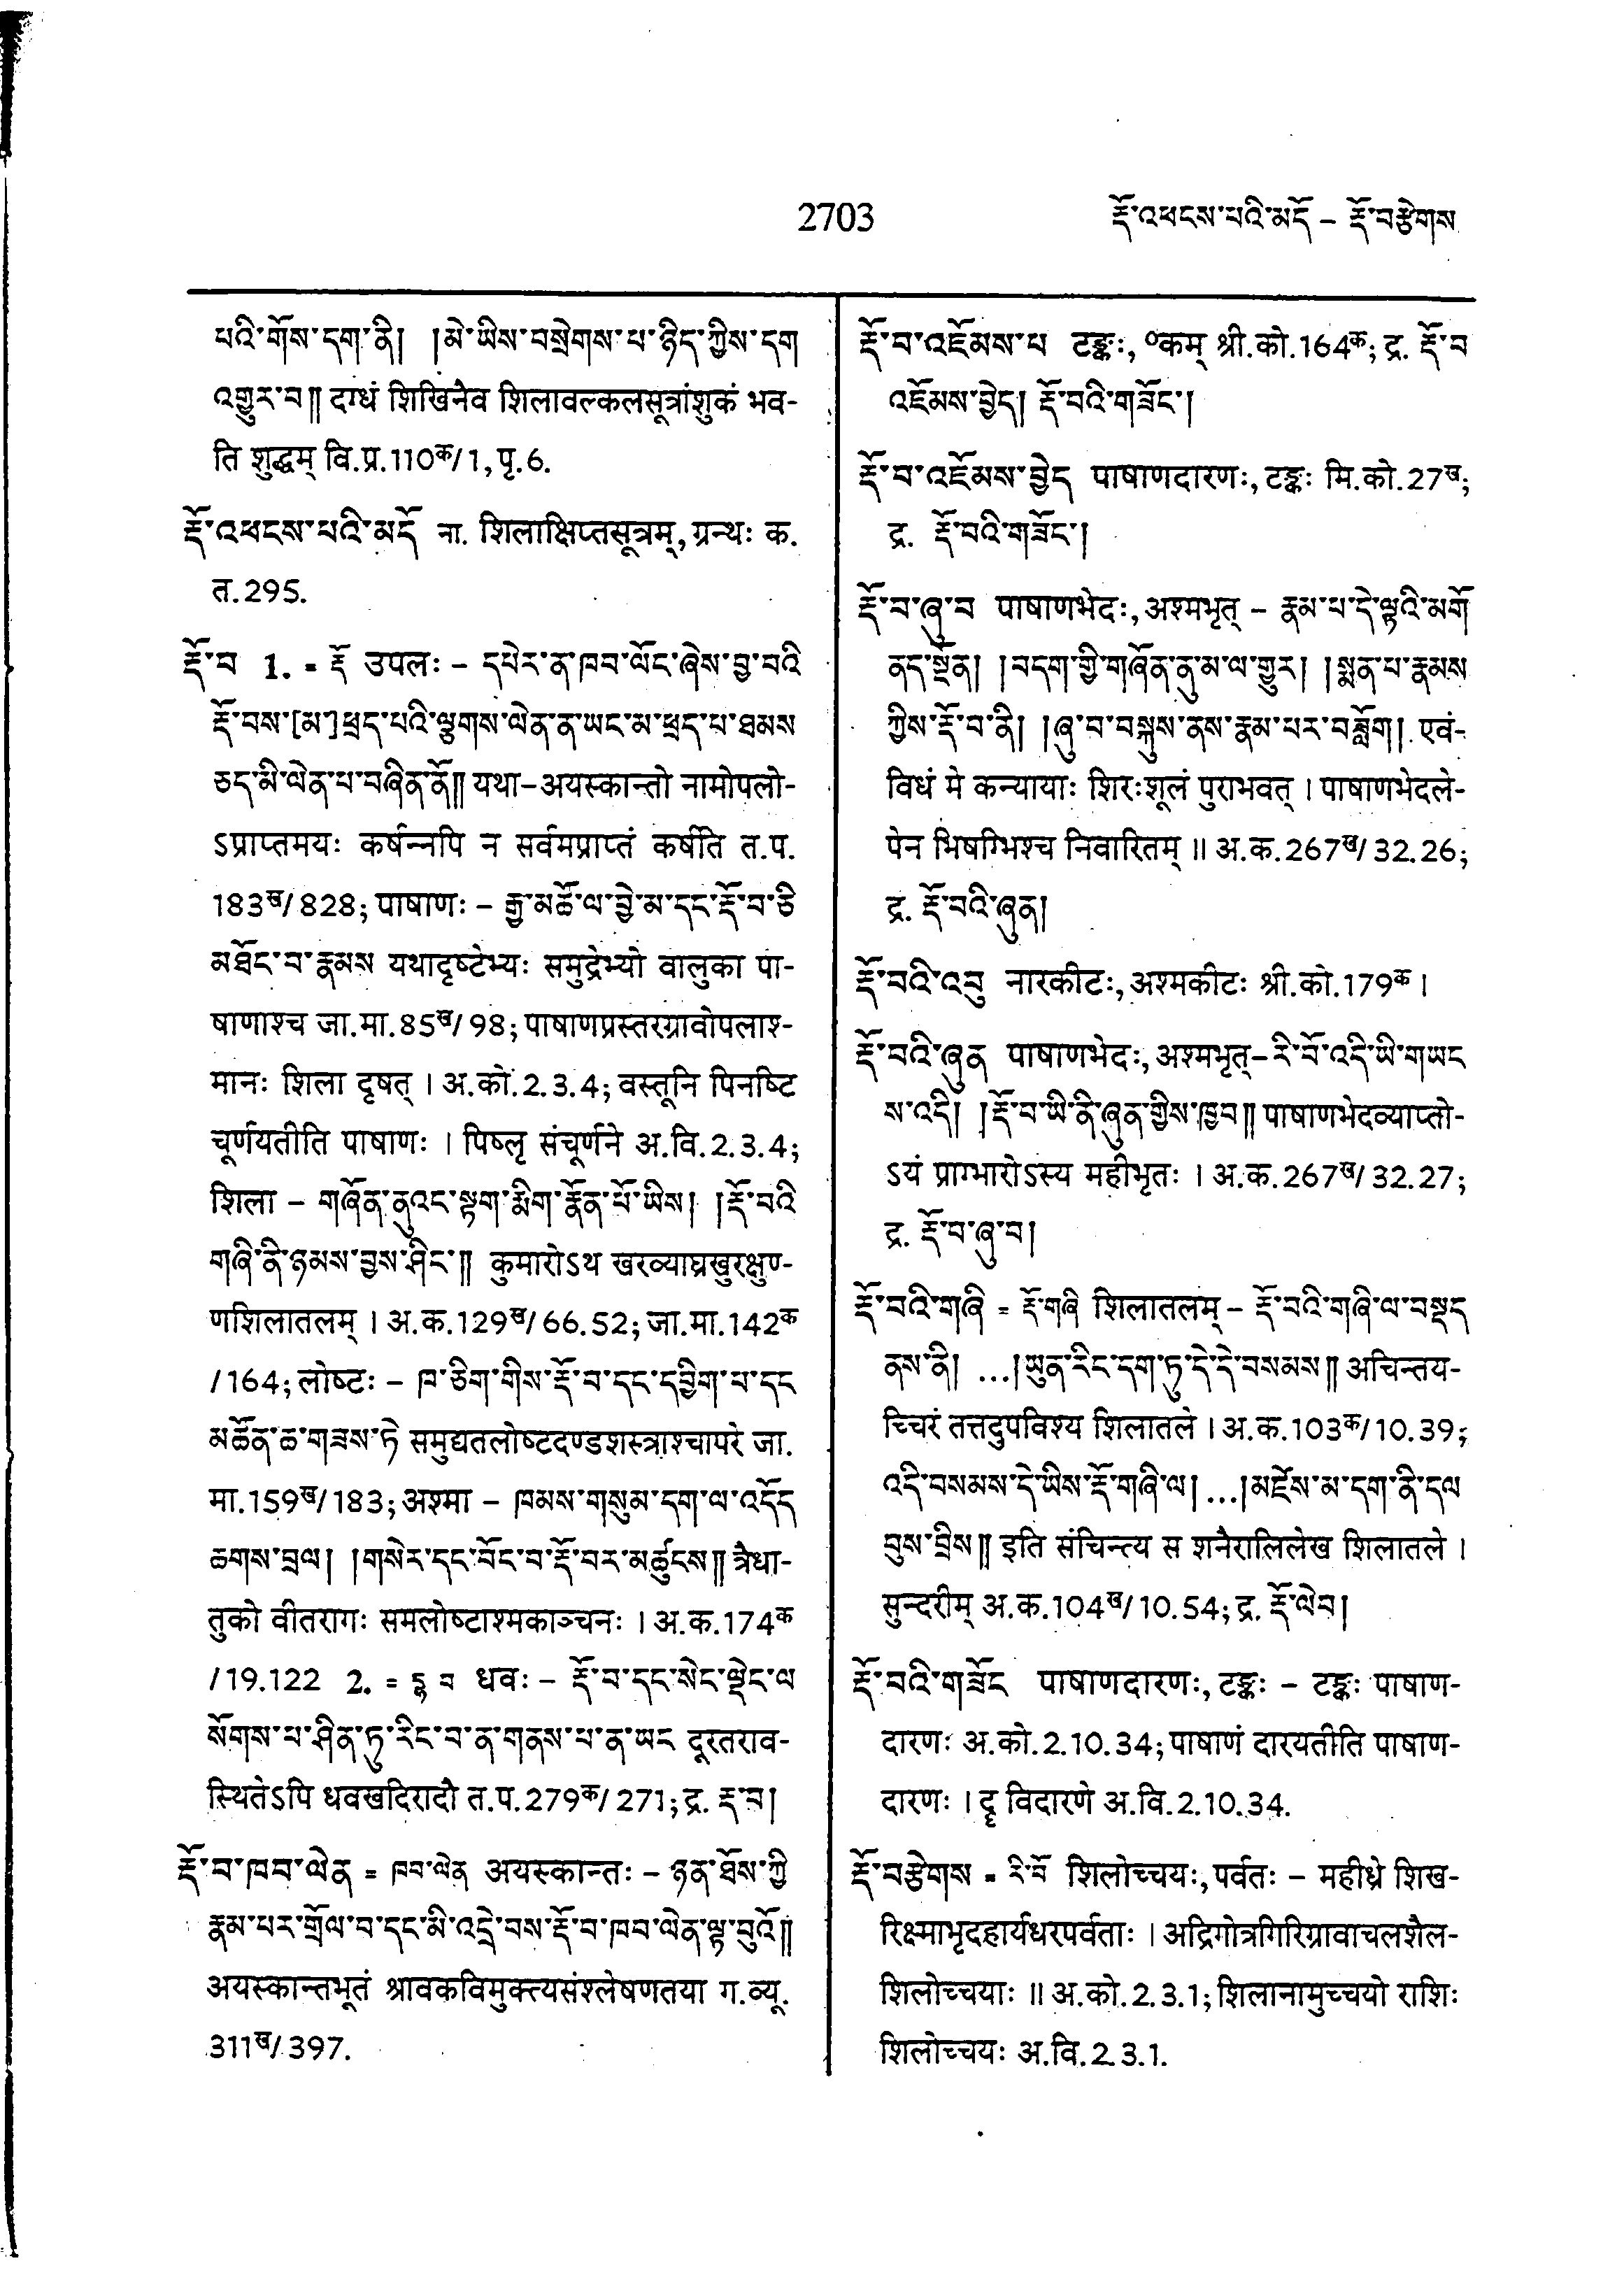 2703
རྡོ་འཕངས་པའི་མདོ – རྡོ་བརྩེགས
པའི་གོས་དག་ནི། །མེ་ཡིས་བསྲེགས་པ་ཉིད་ཀྱིས་དག
འགྱུར་བ༎ दग्धं शिखिनैव शिलावल्कलसूत्रांशुकं भव-
ति शुद्धम् वि.प्र.110क/1, पृ.6.
རྡོ་འཕངས་པའི་མདོ ना. शिलाक्षिप्तसूत्रम्, ग्रन्थः क.
त.295.
རྡོ་བ 1. = རྡོ उपलः – དཔེར་ན་ཁབ་ལོང་ཞེས་བྱ་བའི
རྡོ་བས་[མ་]ཕྲད་པའི་ལྕགས་ལེན་ན་ཡང་མ་ཕྲད་པ་ཐམས
ཅད་མི་ལེན་པ་བཞིན་ནོ༎ यथा–अयस्कान्तो नामोपलो-
ऽप्राप्तमयः कर्षन्नपि न सर्वमप्राप्तं कर्षति त.प.
183ख/828; पाषाणः – རྒྱ་མཚོ་ལ་བྱེ་མ་དང་རྡོ་བ་ཅི
མཐོང་བ་རྣམས यथादृष्टेभ्यः समुद्रेभ्यो वालुका पा-
षाणाश्च जा.मा.85ख/98; पाषाणप्रस्तरग्रावोपलाश्-
मानः शिला दृषत् । अ.को.2.3.4; वस्तूनि पिनष्टि
चूर्णयतीति पाषाणः । पिष्लृ संचूर्णने अ.वि.2.3.4;
शिला – གཞོན་ནུའང་སྟག་རྨིག་རྣོན་པོ་ཡིས། །རྡོ་བའི
གཞི་ནི་ཉམས་བྱས་ཤིང་༎ कुमारोऽथ खरव्याघ्रखुरक्षुण्-
णशिलातलम् । अ.क.129ख/66.52; जा.मा.142क
/164; लोष्टः – ཁ་ཅིག་གིས་རྡོ་བ་དང་དབྱིག་པ་དང
མཚོན་ཆ་གཟས་ཏེ समुद्यतलोष्टदण्डशस्त्राश्चापरे जा.
मा.159ख/183; अश्मा – ཁམས་གསུམ་དག་ལ་འདོད
ཆགས་བྲལ། །གསེར་དང་བོང་བ་རྡོ་བར་མཚུངས༎ त्रैधा-
तुको वीतरागः समलोष्टाश्मकाञ्चनः । अ.क.174क
/19.122 2. = དྷ བ धवः – རྡོ་བ་དང་སེང་ལྡེང་ལ
སོགས་པ་ཤིན་ཏུ་རིང་བ་ན་གནས་པ་ན་ཡང दूरतराव-
स्थितेऽपि धवखदिरादौ त.प.279क/271; द्र. རྡ་བ།
རྡོ་བ་ཁབ་ལེན = ཁབ་ལེན अयस्कान्तः – ཉན་ཐོས་ཀྱི
རྣམ་པར་གྲོལ་བ་དང་མི་འདྲེ་བས་རྡོ་བ་ཁབ་ལེན་ལྟ་བུའོ༎
अयस्कान्तभूतं श्रावकविमुक्त्यसंश्लेषणतया ग.व्यू.
311ख/397.
རྡོ་བ་འཇོམས་པ टङ्कः, ०कम् श्री.को.164क; द्र. རྡོ་བ
འཇོམས་བྱེད། རྡོ་བའི་གཟོང་།
རྡོ་བ་འཇོམས་བྱེད पाषाणदारणः, टङ्कः मि.को.27ख;
द्र. རྡོ་བའི་གཟོང་།
རྡོ་བ་ཞུ་བ पाषाणभेदः, अश्मभृत् – རྣམ་པ་དེ་ལྟའི་མགོ
ནད་སྔོན། །བདག་གྱི་གཞོན་ནུ་མ་ལ་གྱུར། །སྨན་པ་རྣམས
ཀྱིས་རྡོ་བ་ནི། །ཞུ་བ་བསྐུས་ནས་རྣམ་པར་བཟློག། एवं-
विधं मे कन्यायाः शिरःशूलं पुराभवत् । पाषाणभेदले-
पेन भिषग्भिश्च निवारितम् ॥ अ.क.267ख/32.26;
द्र. རྡོ་བའི་ཞུན།
རྡོ་བའི་འབུ नारकीटः, अश्मकीटः श्री.को.179क ।
རྡོ་བའི་ཞུན पाषाणभेदः, अश्मभृत्– རི་བོ་འདི་ཡི་གཡང
ས་འདི། །རྡོ་བ་ཡི་ནི་ཞུན་གྱིས་ཁྱབ༎ पाषाणभेदव्याप्तो-
ऽयं प्राग्भारोऽस्य महीभृतः । अ.क.267ख/32.27;
द्र. རྡོ་བ་ཞུ་བ།
རྡོ་བའི་གཞི = རྡོ་གཞི शिलातलम् – རྡོ་བའི་གཞི་ལ་བསྡད
ནས་ནི། ...།ཡུན་རིང་དག་ཏུ་དེ་དེ་བསམས༎ अचिन्तय-
च्चिरं तत्तदुपविश्य शिलातले । अ.क.103क/10.39;
འདི་བསམས་དེ་ཡིས་རྡོ་གཞི་ལ། ...།མཛེས་མ་དག་ནི་དལ
བུས་བྲིས༎ इति संचिन्त्य स शनैरालिलेख शिलातले ।
सुन्दरीम् अ.क.104ख/10.54; द्र. རྡོ་ལེབ།
རྡོ་བའི་གཟོང पाषाणदारणः, टङ्कः – टङ्कः पाषाण-
दारणः अ.को.2.10.34; पाषाणं दारयतीति पाषाण-
दारणः । दॄ विदारणे अ.वि.2.10.34.
རྡོ་བརྩེགས = རི་བོ शिलोच्चयः, पर्वतः – महीध्रे शिख-
रिक्ष्माभृदहार्यधरपर्वताः । अद्रिगोत्रगिरिग्रावाचलशैल-
शिलोच्चयाः ॥ अ.को.2.3.1; शिलानामुच्चयो राशिः
शिलोच्चयः अ.वि.2.3.1.